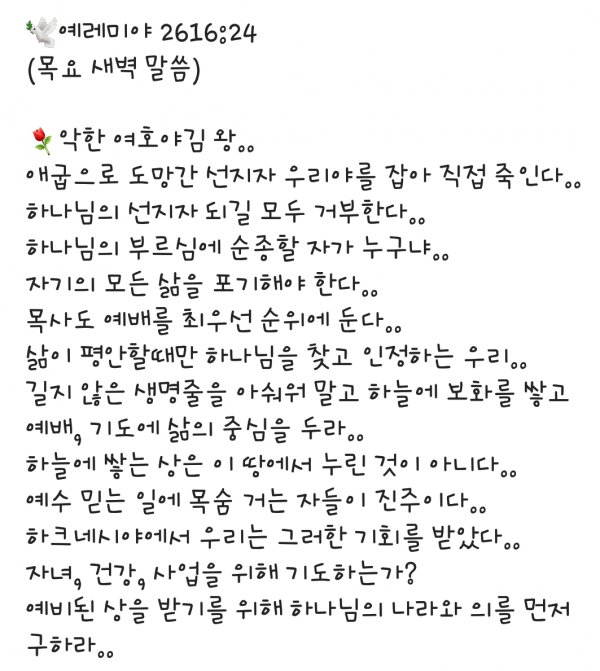 🕊예레미야 2616:24
(목요 새벽 말씀)
🌹악한 여호야김 왕..
애굽으로 도망간 선지자 우리야를 잡아 직접 죽인다..
하나님의 선지자 되길 모두 거부한다..
하나님의 부르심에 순종할 자가 누구냐..
자기의 모든 삶을 포기해야 한다..
목사도 예배를 최우선 순위에 둔다..
삶이 평안할때만 하나님을 찾고 인정하는 우리..
길지 않은 생명줄을 아숴워 말고 하늘에 보화를 쌓고
예배, 기도에 삶의 중심을 두라..
하늘에 쌓는 상은 이 땅에서 누린 것이 아니다..
예수 믿는 일에 목숨 거는 자들이 진주이다..
하크네시야에서 우리는 그러한 기회를 받았다..
자녀, 건강, 사업을 위해 기도하는가?
예비된 상을 받기를 위해 하나님의 나라와 의를 먼저
구하라..